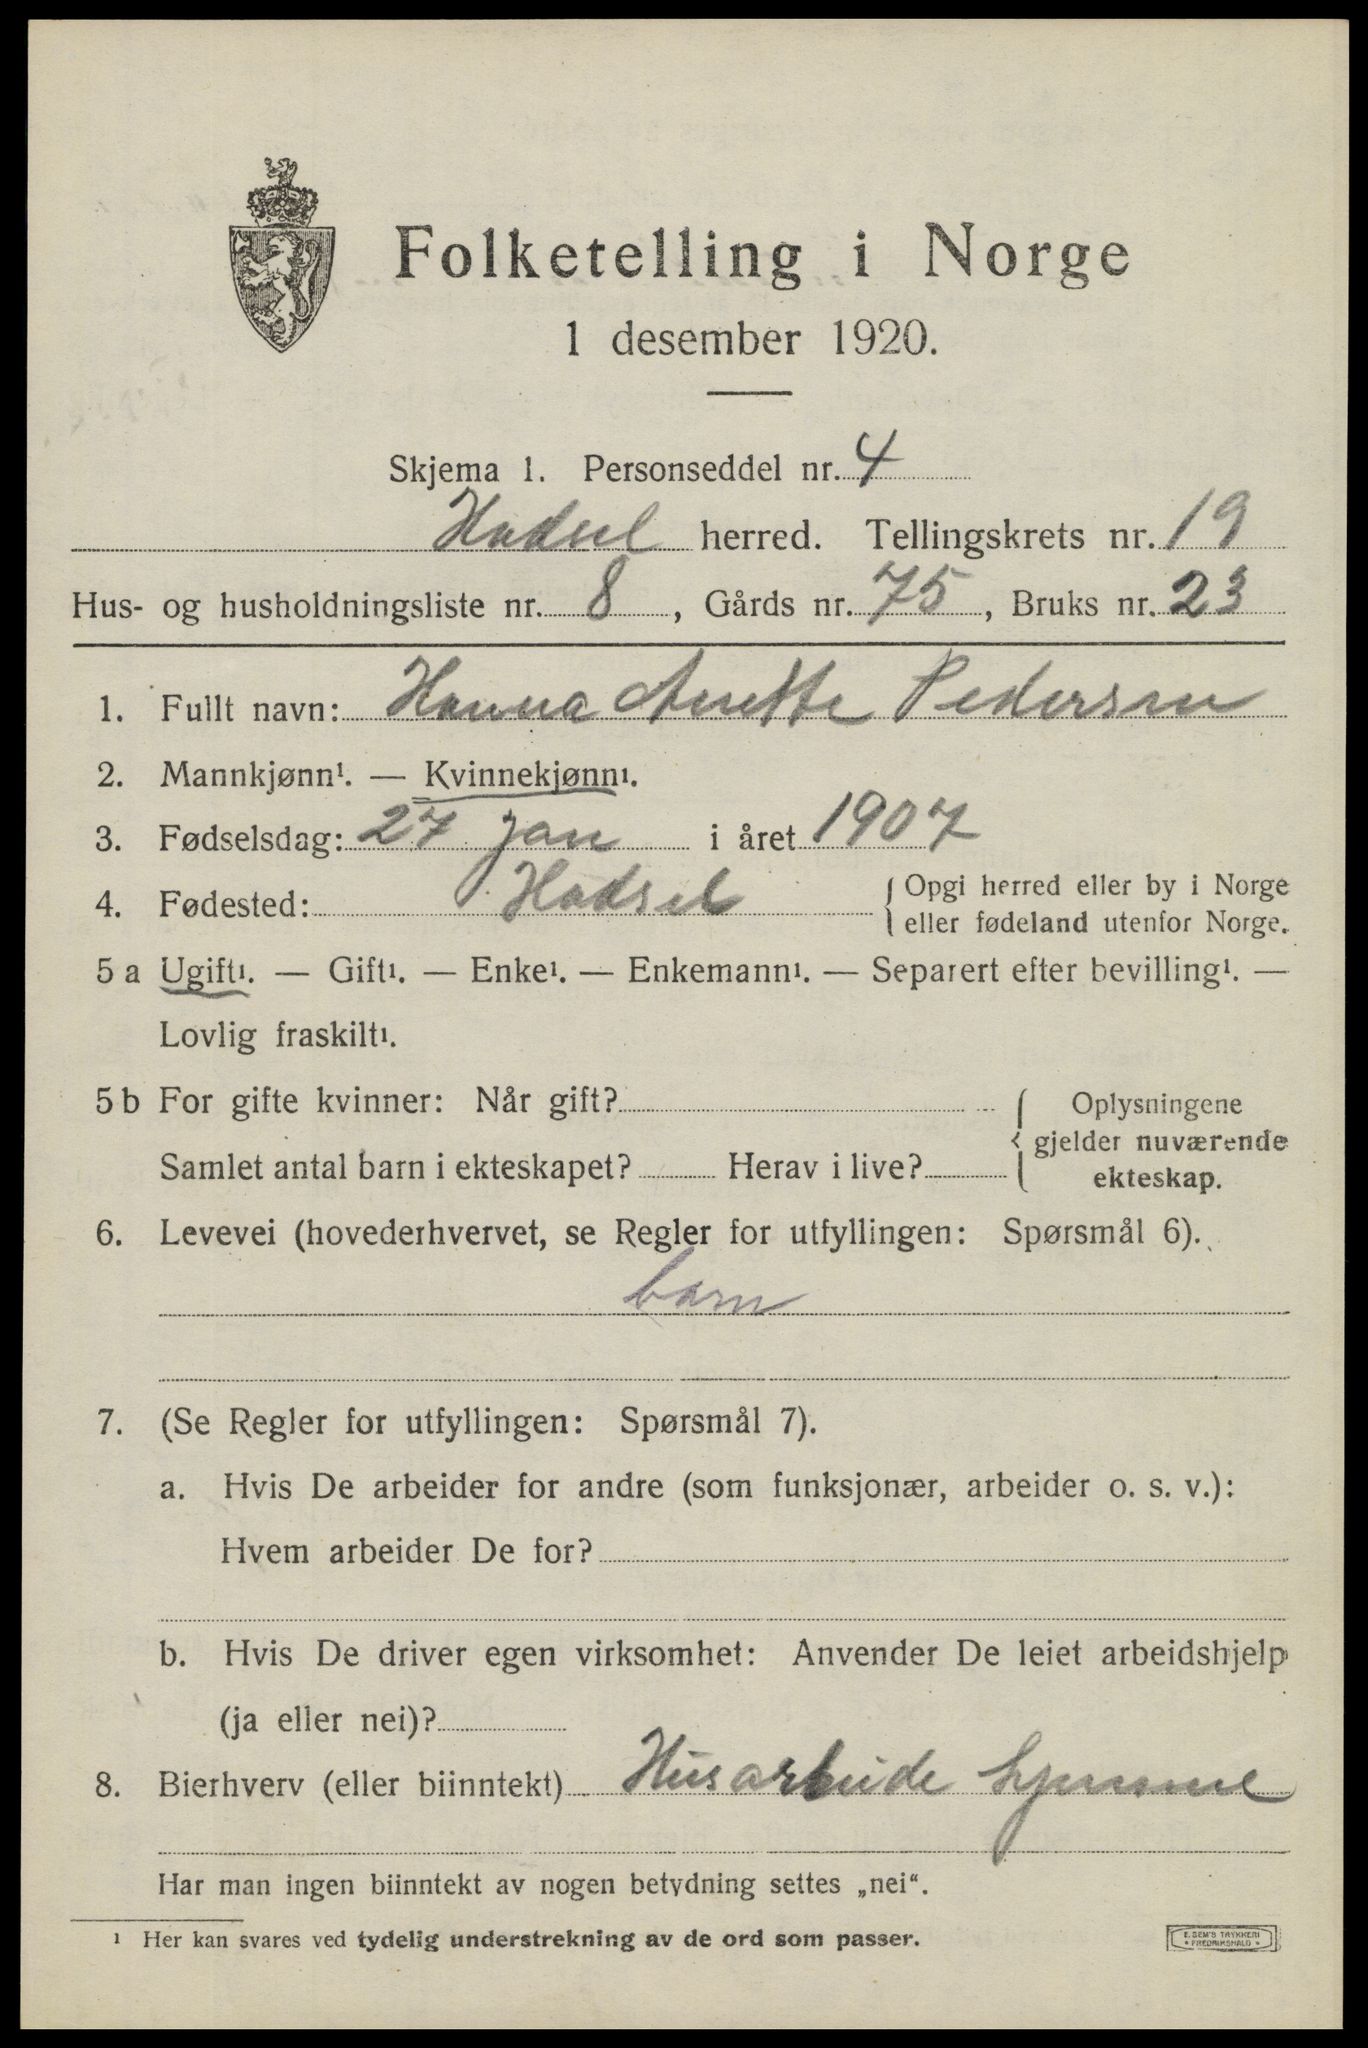 Folketelling i Norge
1 desember 1920.
Skjema 1. Personseddel nr. 4
Hadsel herred. Tellingskrets nr. 19
Hus- og husholdningsliste nr. 8, Gårds nr. 75, Bruks nr. 23
1. Fullt navn: Hanna Anette Pedersen
2. Mannkjønn¹. — Kvinnekjønn¹.
3. Fødselsdag: 27 jan i året 1907
4. Fødested: Hadsel { Opgi herred eller by i Norge
eller fødeland utenfor Norge.
5 a Ugift¹. — Gift¹. — Enke¹. — Enkemann¹. — Separert efter bevilling¹. —
Lovlig fraskilt¹.
5 b For gifte kvinner: Når gift?
Samlet antal barn i ekteskapet? Herav i live?
{ Oplysningene
gjelder nuværende
ekteskap.
6. Levevei (hovederhvervet, se Regler for utfyllingen: Spørsmål 6).
barn
7. (Se Regler for utfyllingen: Spørsmål 7).
a. Hvis De arbeider for andre (som funksjonær, arbeider o. s. v.):
Hvem arbeider De for?
b. Hvis De driver egen virksomhet: Anvender De leiet arbeidshjelp
(ja eller nei)?
8. Bierhverv (eller biinntekt) Husarbeide hjemme
Har man ingen biinntekt av nogen betydning settes „nei“.
¹ Her kan svares ved tydelig understrekning av de ord som passer.
E. SEM'S TRYKKERI
• FREDRIKSHALD •